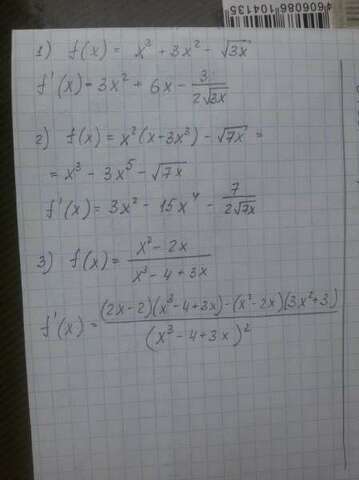 4606086104135
1) f(x) = x³ + 3x² - √3x
f'(x) = 3x² + 6x - 3/(2√3x)
2) f(x) = x²(x-3x³) - √7x =
= x³ - 3x⁵ - √7x
f'(x) = 3x² - 15x⁴ - 7/(2√7x)
3) f(x) = (x² - 2x)/(x³ - 4 + 3x)
f'(x) = ((2x-2)(x³-4+3x)-(x²-2x)(3x²+3))/(x³-4+3x)²